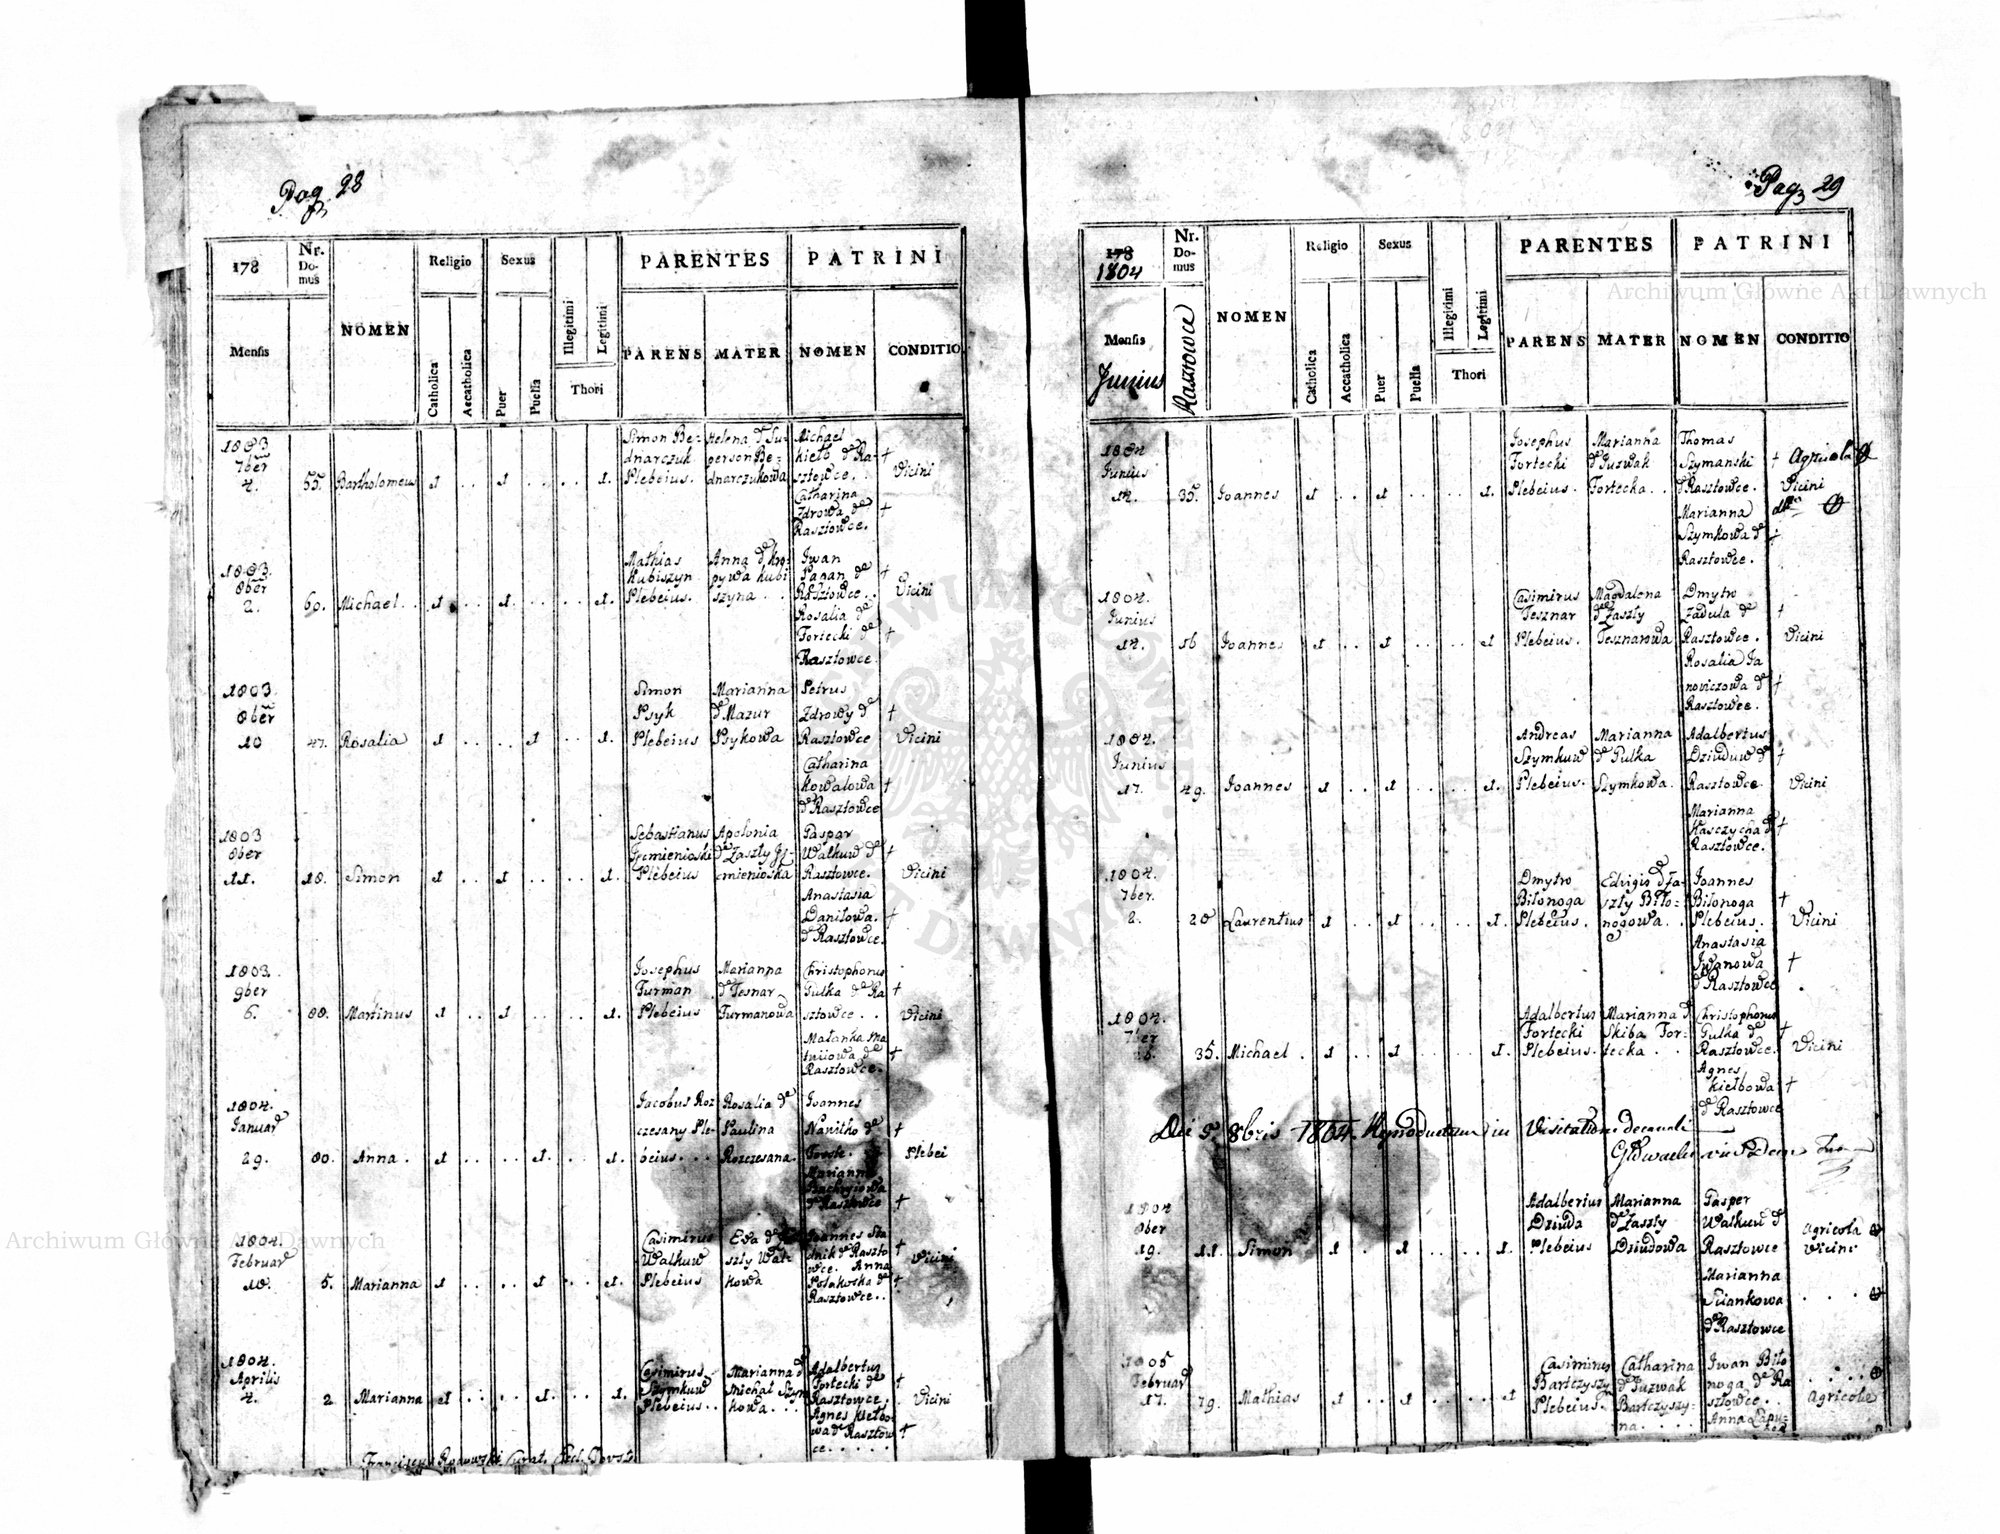 Pag. 28
178
Nr. Domus
NOMEN
Religio
Sexus
PARENTES
PATRINI
Mensis
Catholica
Accatholica
Puer
Puella
Illegitimi
Legitimi
Thori
PARENS
MATER
NOMEN
CONDITIO
1803 7ber 4. 55. Bartholomeus 1 . . 1 . . . . 1.
Simon Bednarczuk Plebeius.
Helena de Superson Bednarczukowa
Michael Kiełb de Rasztowce. . †
Catharina Zdrowa de Rasztowce. †
Vicini
1803. 8ber 2. 60. Michael . . 1 . . 1 . . . . 1.
Mathias Kubiszyn Plebeius.
Anna de Kropywa Kubiszyna . .
Iwan Panan de Rasztowce. . †
Rosalia de Fortecki de Rasztowce †
Vicini
1803. 8ber 10 47. Rosalia 1 . . . . 1 . . 1.
Simon Psyk Plebeius
Marianna de Mazur Psykowa
Petrus Zdrowy de Rasztowce †
Catharina Kowalowa de Rasztowce †
Vicini
1803 8ber 11. 18. Simon 1 . . 1 . . . . 1.
Sebastianus Plebeius
Apolonia de Zaszły
Gaspar Walkuw de Rasztowce. †
Anastasia Daniłowa. de Rasztowce. †
Vicini
1803. 9ber 6. 88. Martinus 1 . . 1 . . . . 1.
Iosephus Furman Plebeius
Marianna de Tesnar Furmanowa
Christophorus Pulka de Rasztowce . . †
Małanka de Rasztowce. †
Vicini
1804. Januar 29. 80. Anna . 1 . . . . 1. . . 1.
Jacobus Rozczesany Plebeius . . .
Rosalia de Paulina Rozczesana.
Ioannes de †
Marianna de Rasztowce †
Plebei
1804. Februar 10. 5. Marianna 1 . . . . 1 . . 1.
Casimirus Walkuw Plebeius
Eva de Walkowa
Ioannes de Rasztowce. †
Anna Polakoska de Rasztowce. . †
Vicini
1804. Aprilis 4. 2 Marianna 1 . . . . 1. . . 1.
Casimirus Szymkuw Plebeius. .
Marianna de Michał Szymkowa. . .
Adalbertus Fortecki de Rasztowce. †
Agnes Kiełbowa de Rasztowce. . . . . †
Vicini
Pag 29
178
1804
Nr. Domus
Rasztowce
NOMEN
Religio
Sexus
PARENTES
PATRINI
Mensis
Junius
Catholica
Accatholica
Puer
Puella
Illegitimi
Legitimi
Thori
PARENS
MATER
NOMEN
CONDITIO
1804 Iunius 12. 35. Ioannes 1 . . 1 . . . . 1.
Iosephus Fortecki Plebeius.
Marianna de Juzwak Fortecka . .
Thomas Szymanski de Rasztowce. †
Marianna Szymkowa de Rasztowce. †
Agricola
Vicini
1804. Iunius 14. 16 Ioannes 1 . . 1 . . . . 1
Casimirus Tesznar Plebeius.
Magdalena de Zaszły Tesznarowa
Dmytro Zadula de Rasztowce. †
Rosalia Janoviczowa de Rasztowce. †
Vicini
1804. Iunius 17. 49. Ioannes 1 . . 1 . . . . 1.
Andreas Szymkuw Plebeius.
Marianna de Pulka Szymkowa.
Adalbertus Dziuduw de Rasztowce. †
Marianna Kasczycha de Rasztowce. †
Vicini
1804. 7ber. 2. 20 Laurentius 1 . . 1 . . . . 1.
Dmytro Biłonoga Plebeius.
Edvigis de Zaszły Biłonogowa. .
Ioannes Biłonoga Plebeius. . †
Anastasia Iwanowa de Rasztowce †
Vicini
1804. 7ber 26. 35. Michael . 1 . . 1 . . . . 1.
Adalbertus Fortecki Plebeius.
Marianna de Skiba Fortecka . .
Christophorus Pulka de Rasztowce. †
Agnes Kiełbowa de Rasztowce †
Vicini
Die 5. 8bris 1804. Reproductum in Visitatione decanali
1804 8ber 19. 11. Simon 1 . . 1 . . . . 1.
Adalbertus Dziuda Plebeius
Marianna de Zaszły Dziudowa
Gasper Walkuw de Rasztowce
Marianna de Rasztowce
Agricola
Vicini
1805 Februar 17. 79. Mathias 1 . . 1 . . . . 1
Casimirus Bartczyszyn Plebeius.
Catharina de Juzwak Bartczyszyna. . . .
Iwan Biłonoga de Rasztowce. .
Anna
Agricola
Archiwum Główne Akt Dawnych